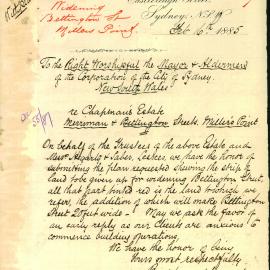 Castlereagh Street
Widening
Sydney, N.S.W
Bettington St
Millers Point
Feb 16th 1885
To the Right Worshipful the Mayor & Aldermen
of the Corporation of the City of Sydney.
New South Wales
re Chapman's Estate
Merriman & Bettington Streets Miller's Point
On behalf of the Trustees of the above Estate and
lessees, we have the honor of
submitting the plan requested shewing the strip of
land to be given up for widening Bettington Street,
all that part tinted red is the land to which we
refer, the addition of which will make Bettington
Street 20 feet wide - May we ask the favor of
an early reply as our Clients are anxious to
commence building operations.
We have the honor of being
Yours most respectfully